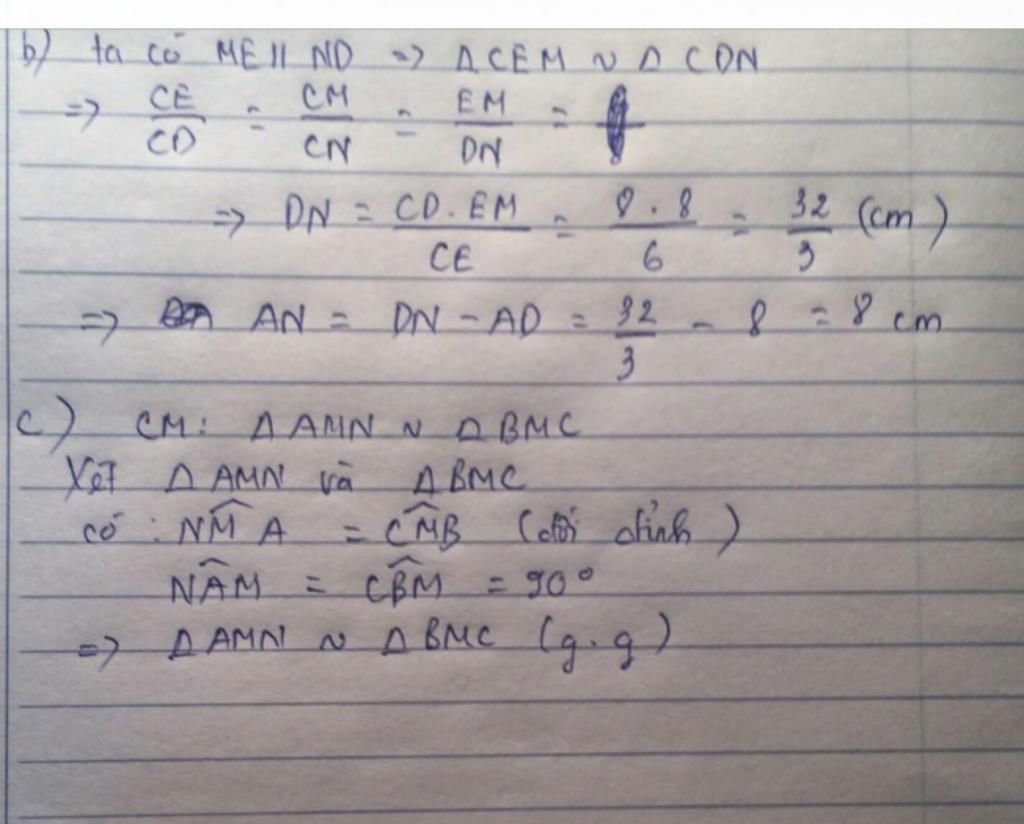 b) ta có ME // ND => Δ CEM ~ Δ CDN
=> CE/CD = CM/CN = EM/DN =
=> DN = CD.EM/CE = 8.8/6 = 32/3 (cm)
=> AN = DN - AD = 32/3 - 8 = 8 cm
c) CM: Δ AMN ~ Δ BMC
Xét Δ AMN và Δ BMC
có: NM̂A = CM̂B (đối đỉnh)
NÂM = CB̂M = 90°
=> Δ AMN ~ Δ BMC (g.g)